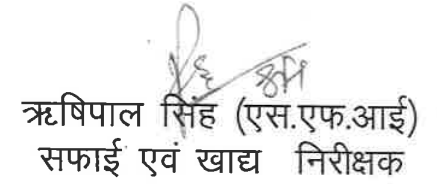 ऋषिपाल सिंह (एस.एफ.आई)
सफाई एवं खाद्य निरीक्षक